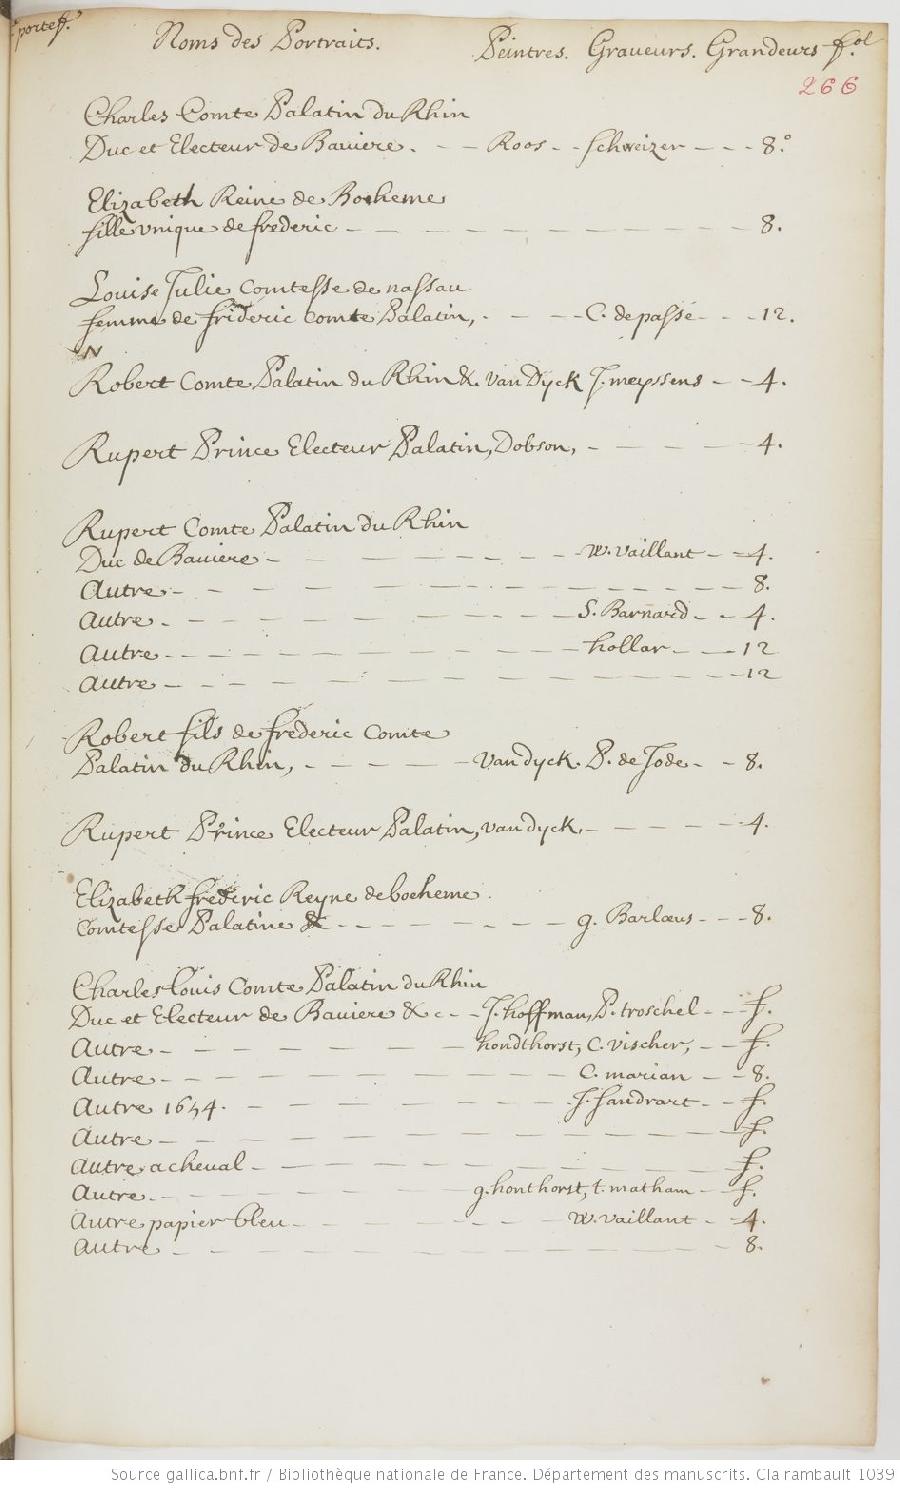 portef.
Noms des Portraits. Peintres. Graveurs. Grandeurs fol.
266
Charles Comte Palatin du Rhin
Duc et Electeur de Baviere. - - Roos - - Schweizer - - - 8.°
Elizabeth Reine de Boheme
fille vnique de frederic - - - - - - - - - 8.
Louise Julie Comtesse de nassau
femme de frideric comte Palatin, - - - - C. de passe - - - 12.
Robert Comte Palatin du Rhin &. van Dyck J. meyssens - - 4.
Rupert Prince Electeur Palatin, Dobson, - - - - - 4.
Rupert Comte Palatin du Rhin
Duc de Baviere - - - - - - - w. vaillant - - 4.
Autre - - - - - - - - - - 8.
Autre - - - - - - - - S. Barnard - - 4.
Autre - - - - - - - - hollar - - - 12
Autre - - - - - - - - - - 12
Robert fils de frederic comte
Palatin du Rhin, - - - - - Vandyck. P. de Jode - - 8.
Rupert Prince Electeur Palatin, vandyck, - - - - - 4.
Elizabeth frederic Reyne de boeheme
Comtesse Palatine & - - - - - - - g. Barlæus - - - 8.
Charles louis Comte Palatin du Rhin
Duc et Electeur de Baviere &c - - J. hoffman, P. troschel - - f.
Autre - - - - - - hondthorst, C. vischer, - - f.
Autre - - - - - - - - C. marian - - 8.
Autre 1644. - - - - - - - J. Sandrart - - f.
Autre - - - - - - - - - - f.
Autre a cheval - - - - - - - - - f.
Autre - - - - - - g. honthorst, t. matham - - f.
Autre papier bleu - - - - - - w. vaillant - - 4.
Autre - - - - - - - - - - 8.
Source gallica.bnf.fr / Bibliothèque nationale de France. Département des manuscrits. Clairambault 1039